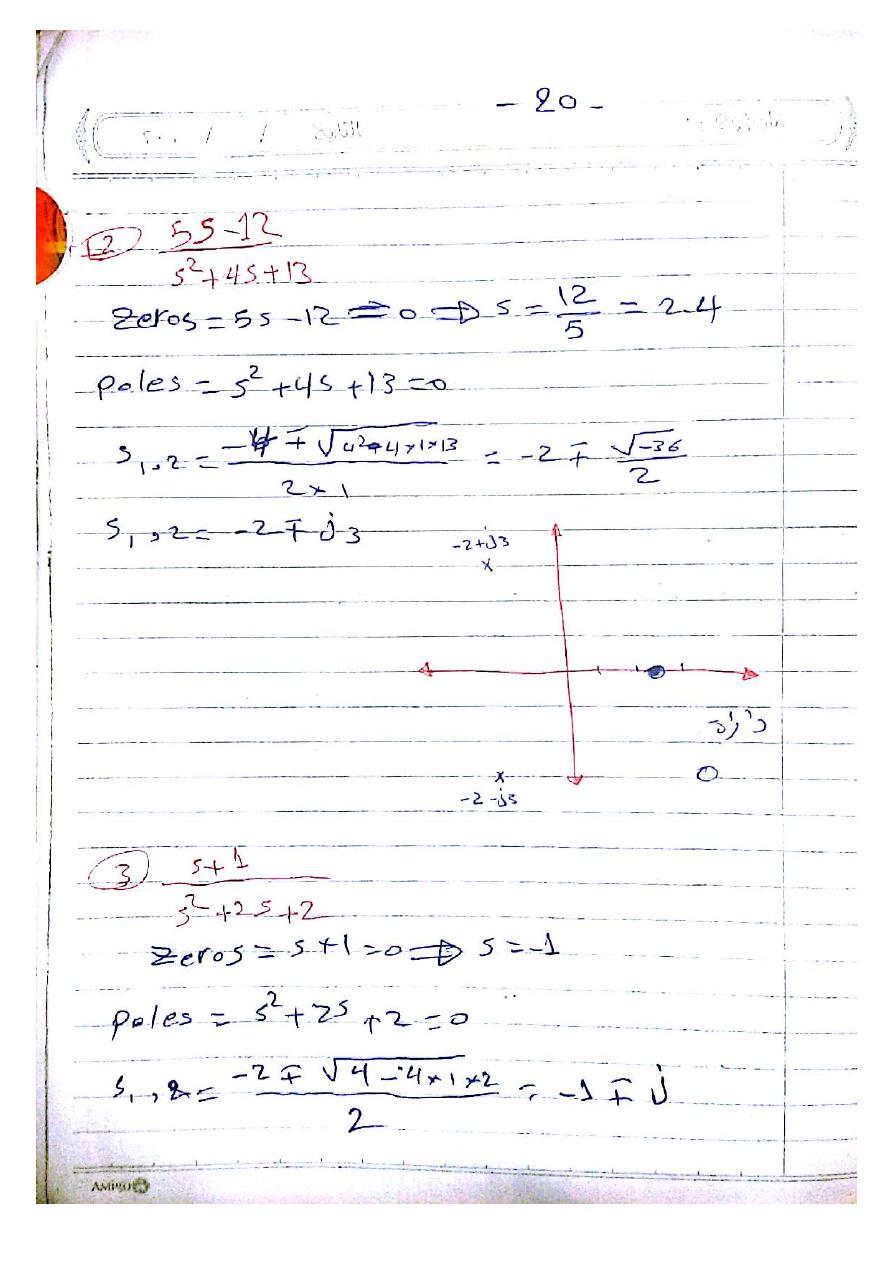 - 20 -
التاريخ / / ٢٠
2 5s-12
s²+4s+13
Zeros = 5s -12 = 0 ⇒ s = 12/5 = 2.4
Poles = s² +4s +13 = 0
s₁,₂ = (-4 ∓ √4²-4×1×13) / 2×1 = -2 ∓ √-36 / 2
s₁,₂ = -2 ∓ j3
-2+j3
x
x
-2-j3
3 s+1
s²+2s+2
Zeros = s+1 = 0 ⇒ s = -1
Poles = s²+2s +2 = 0
s₁,₂ = (-2 ∓ √4-4×1×2) / 2 = -1 ∓ j